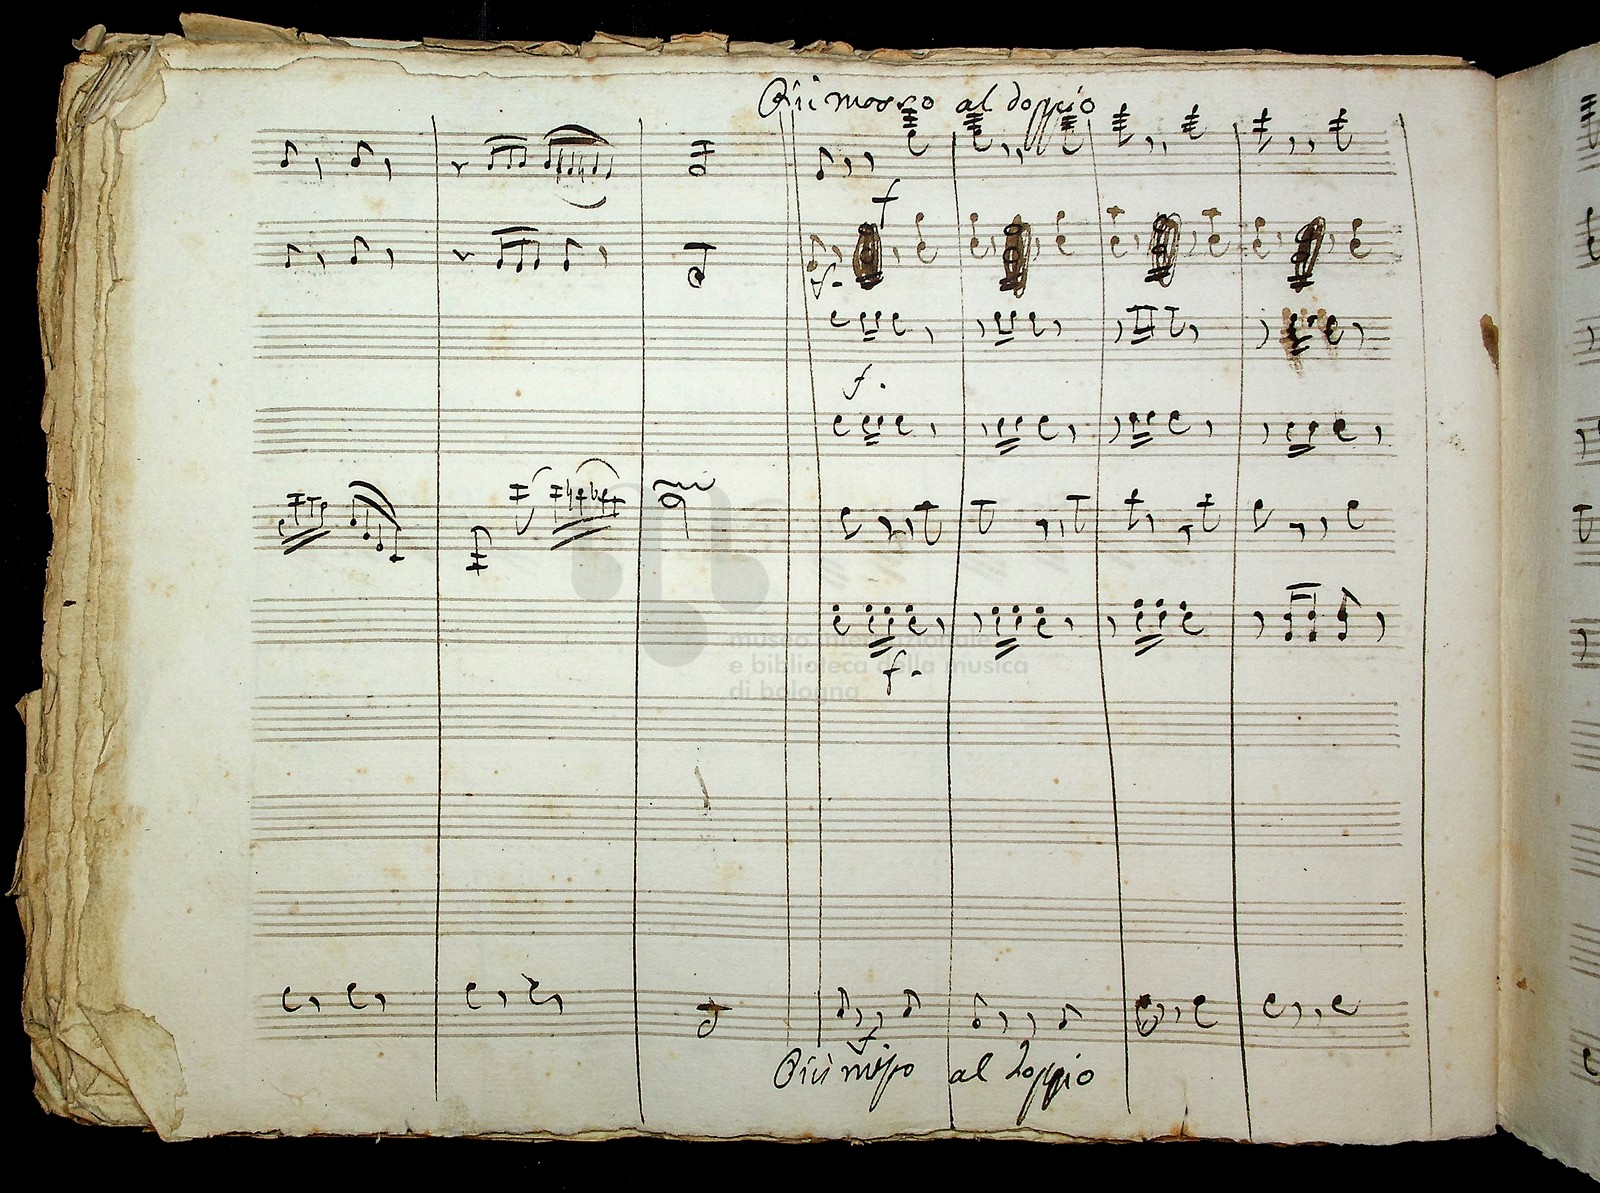 Più mosso al doppio
f
f.
f.
museo internazionale
e biblioteca della musica
di bologna
f.
f
Più mosso al doppio